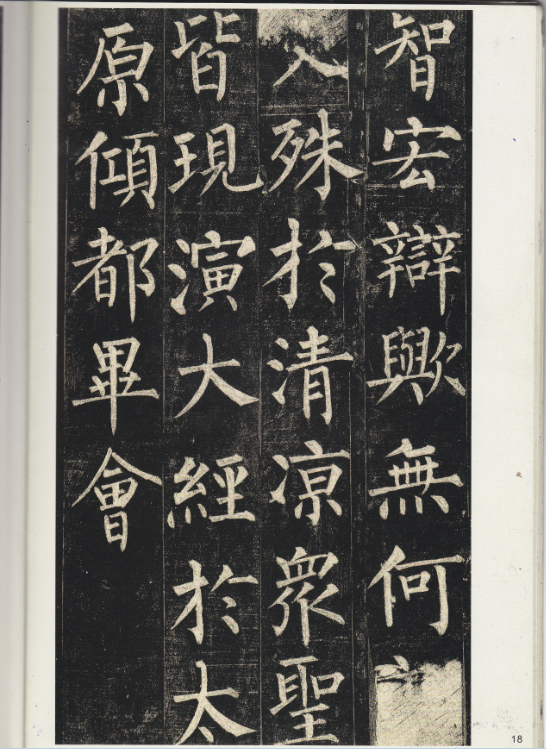 智宏辯歟無何
殊於清凉衆聖
皆現演大經於太
原傾都畢會
18